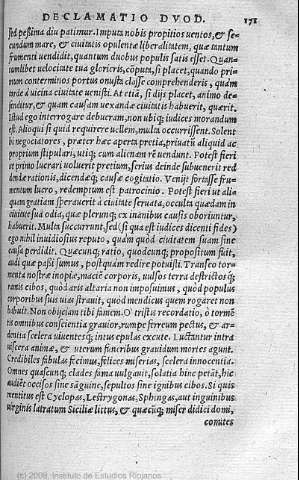 DECLAMATIO DVOD. 171
sed peßima diu patimur. Imputa nobis propitios uentos, & se-
cundum mare, & ciuitatis opulentæ liberalitatem, quæ tantum
frumenti uendidit, quantum duobus populis satis esset. Quan-
tumlibet uelocitate tua glorieris, si placet, quando pri-
num conterminos portus onusta classe comprehenderis, quam
unde à uicina ciuitate uenisti. At ita, si dijs placet, animo de-
fenditur, & quam causam uexandæ ciuitatis habuerit, quærit.
Istud ego interrogare debueram, non ubiq; iudices morandum
est. Alioqui si quid requirere uellem, multa occurrissent. Solent
hi negociatores, præter hæc aperta pretia, priuatũ aliquid ac
proprium stipulari, utiq; cum alienam rẽ uendunt. Potest fieri
ut primo lucrari uoluerit pretium, serius deinde subuenerit red
dendæ rationis, dicendæq; causæ cogitatio. Venijt fortasse fru-
mentum lucro, redemptum est patrocinio. Potest fieri ut ali-
quam gratiam sperauerit à ciuitate seruata, occultã quædam in
ciuitate sua odia, quæ plerunq; ex inanibus causis oboriuntur,
habuerit. Multa succurrunt, sed (si qua est iudices dicenti fides)
ego nihil inuidiosius reputo, quam quod ciuitatem suam sine
causa perdidit. Quacunq; ratio, quodcunq; propositum fuit,
audi quæ paßi sumus, postquam redire potuisti. Transeo tor-
menta nostræ inopiæ, macẽ corporis, nullos terra destrictos q;
ramis cibos, quòd aris altaria non imposuimus, quod populus
corporibus suis uias strauit, quod mendicus quem rogaret non
habuit. Non obijciam tibi famem. O tristis recordatio, ô tormẽ
tis omnibus conscientia grauior, rumpe ferreum pectus, & ar-
dentia scelera uisentes q; intus epulas excute. Luctantur intra
uiscera animæ, & uterum funeribus grauidum mortes agunt.
Credibiles fabulas fecimus, felices miserias, scelera innocentia.
Omnes quascunq; clades fama uulgauit, solatia hinc petãt, hic
audiẽt occisos sine sãguine, sepultos sine ignibus cibos. Si quis
mentitus est Cyclopas, Lestrygonas, Sphingas, aut inguinibus
uirginis latratum Siciliæ litus, & quæcũq; miser didici domi,
conutes
(c) 2009, Instituto de Estudios Riojanos